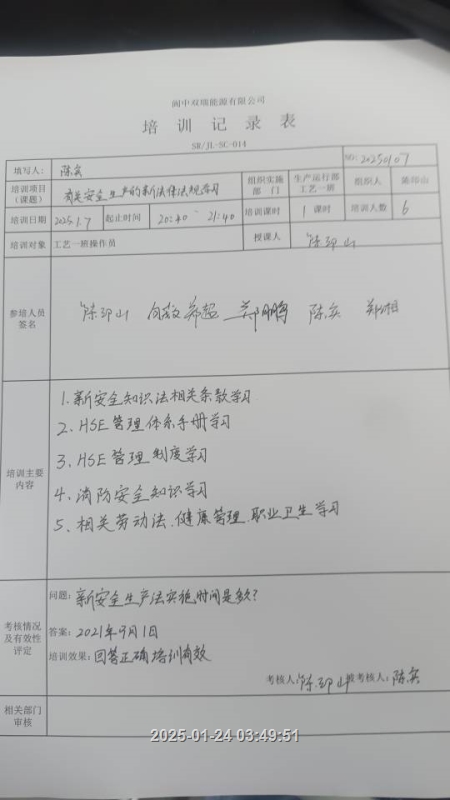 阆中双瑞能源有限公司
培训记录表
SR/JL-SC-014
填写人: 陈实 NO: 20250107
培训项目(课题) 有关安全生产的新法律法规学习 组织实施部门 生产运行部工艺一班 组织人 陈邛山
培训日期 2025.1.7 起止时间 20:40~21:40 培训课时 1课时 培训人数 6
培训对象 工艺一班操作员 授课人 陈邛山
参培人员签名 陈邛山 郑鹏 陈实
培训主要内容
1.新安全知识法相关条款学习
2. HSE管理体系手册学习
3. HSE管理制度学习
4. 消防安全知识学习
5. 相关劳动法、健康管理、职业卫生学习
考核情况及有效性评定
问题: 新安全生产法实施时间是多久?
答案: 2021年9月1日
培训效果: 回答正确 培训有效
考核人: 陈邛山 被考核人: 陈实
相关部门审核
2025-01-24 03:49:51